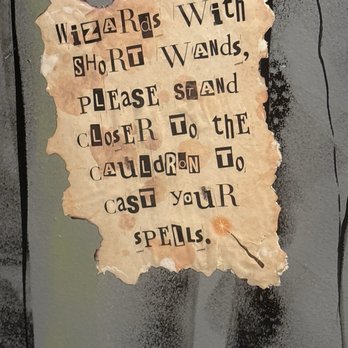 WIZARDS WITH
SHORT WANDS,
PLEASE STAND
CLOSER TO the
CAULDRON TO
CAST YOUR
SPELLS.